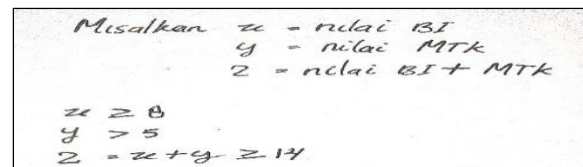 Misalkan x = nilai BI
y = nilai MTK
z = nilai BI + MTK
x ≥ 8
y > 5
z = x + y ≥ 14